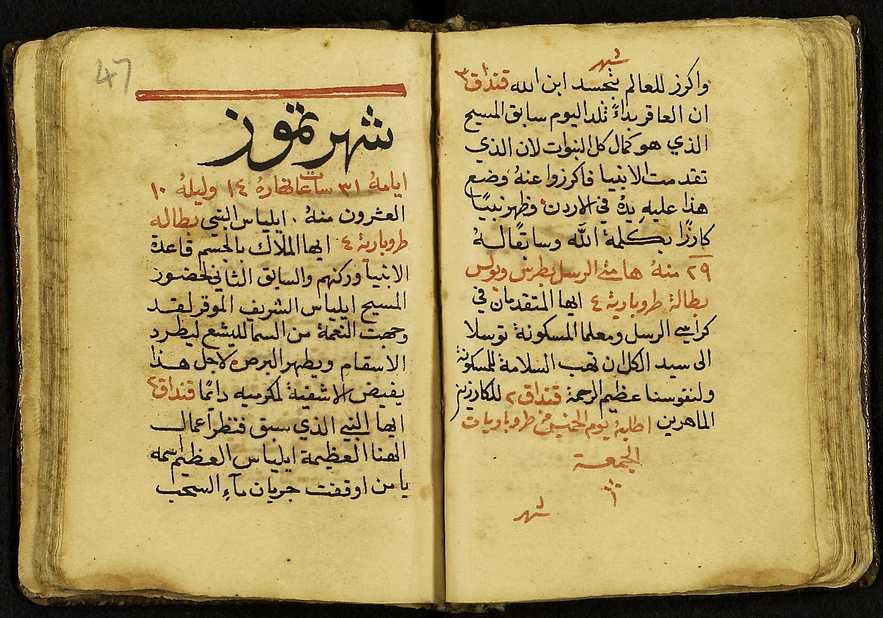 شهر
واكرز للعالم بتجسد ابن الله قنداق ٣
ان العاقر بداءً تلد اليوم سابق المسيح
الذي هو كمال كل النبوات لان الذي
تقدمت الانبيا فاكرزوا عنهُ وضع
هذا عليهِ يدهُ في الاردن وظهر نبيًا
كارزًا بكلمة الله وسابقًا لهُ
٢٩ منهُ هامتي الرسل بطرس وبولس
بطالة طروبارية ٤ ايها المتقدمان في
كراسي الرسل ومعلما المسكونة توسلا
الى سيد الكل ان يهب السلامة للمسكونة
ولنفوسنا عظيم الرحمة قنداق ٢ للكارزين
الماهرين اطلبهُ يوم الخميس من طروباريات
الجمعة
شهر
47
شهر تموز
ايامهُ ٣١ ساعات نهارهُ ١٤ وليلهُ ١٠
العشرون منهُ ايلياس النبي بطاله
طروبارية ٤ ايها الملاك بالجسم قاعدة
الانبيا وركنهم والسابق الثاني لحضور
المسيح ايلياس الشريف الموقر لقد
وجهت النعمة من السما لليشع ليطرد
الاسقام ويطهر البرص لاجل هذا
يفيض الاشفية لمكرميه دائمًا قنداق ٤
ايها النبي الذي سبق فنظر اعمال
الهنا العظيمة ايلياس العظيم اسمه
يا من اوقفت جريان مآءِ السحب